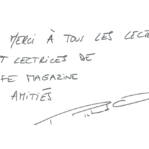 MERCI À TOUS LES LECTE
T LECTRICES DE
FE MAGAZINE
AMITIÉS